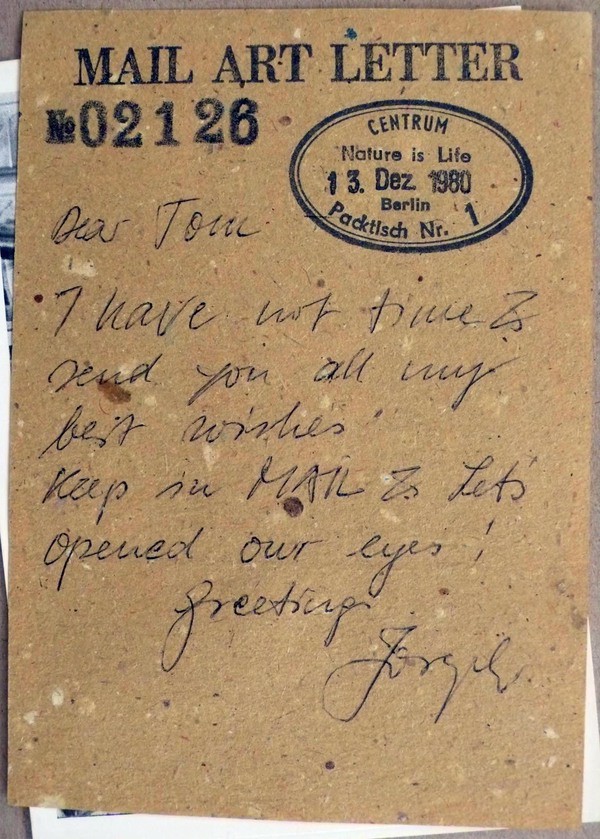 MAIL ART LETTER
№02126
CENTRUM
Nature is Life
13. Dez. 1980
Berlin
Packtisch Nr. 1
Dear Tom
I have not time to
send you all my
best wishes
Keep in MAIL to Let's
opened our eyes!
Greetings